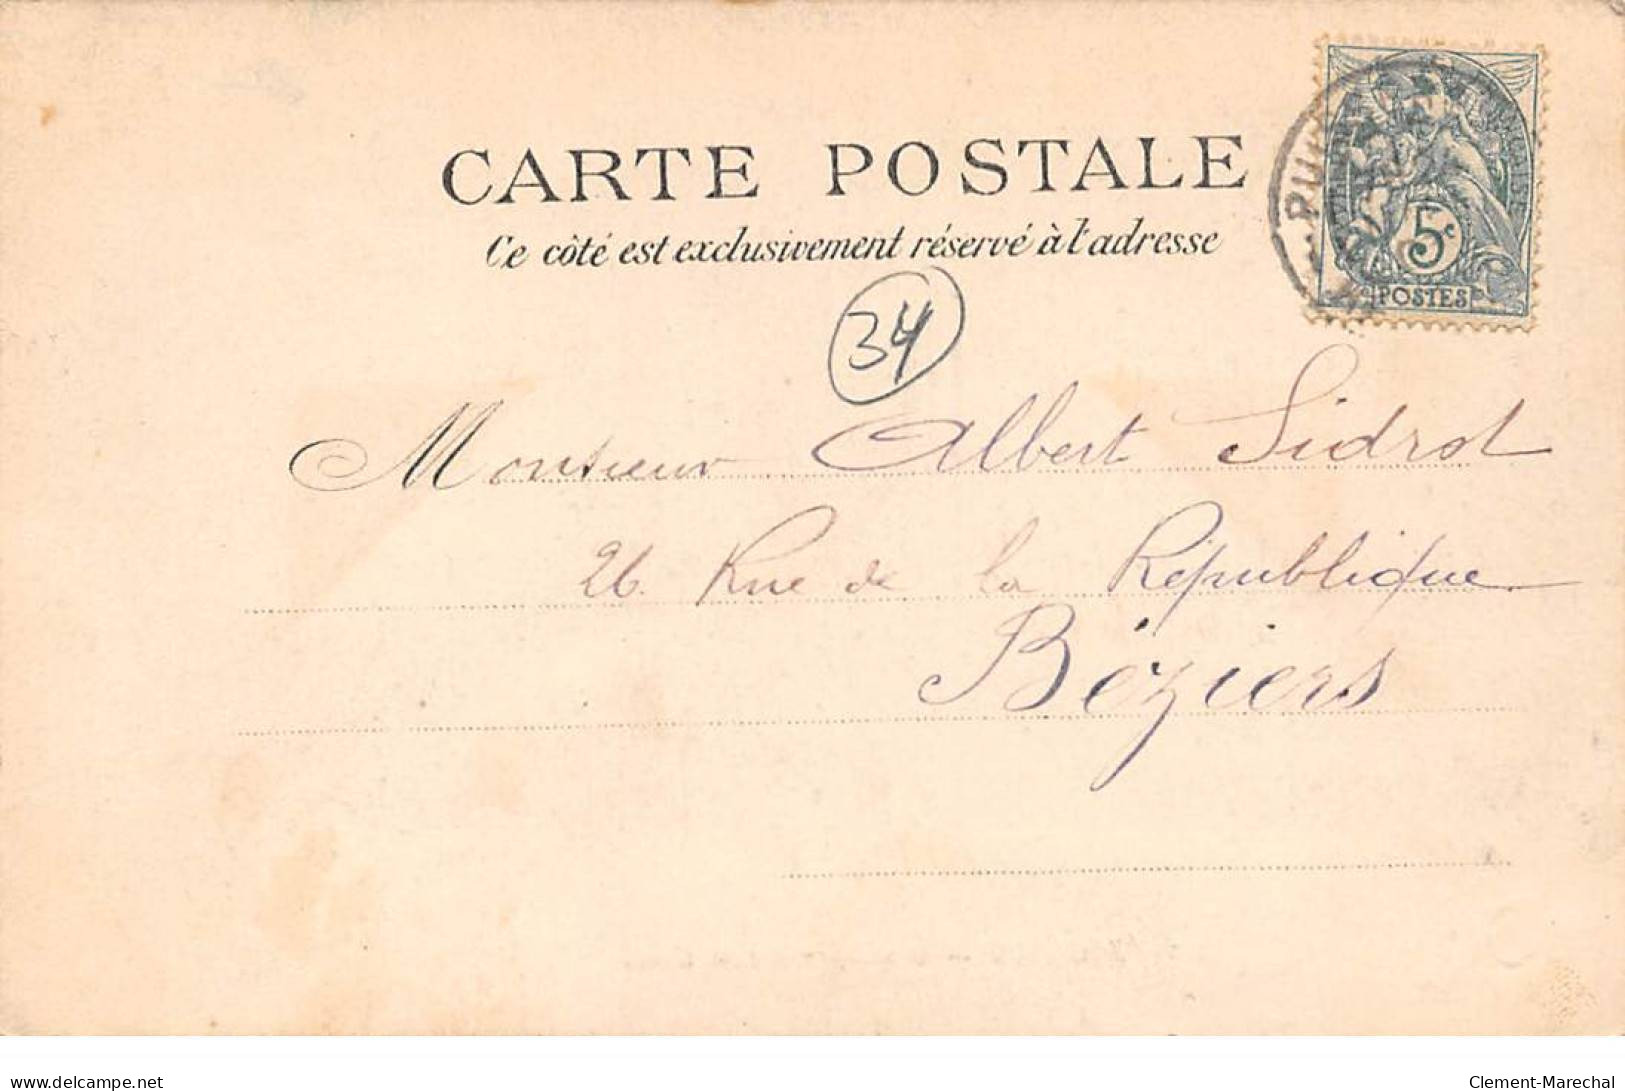 CARTE POSTALE
Ce côté est exclusivement réservé à l'adresse
5c
POSTES
34
Monsieur Albert Sidrol
26. Rue de la République
Béziers
delcampe.net
Clement-Marechal